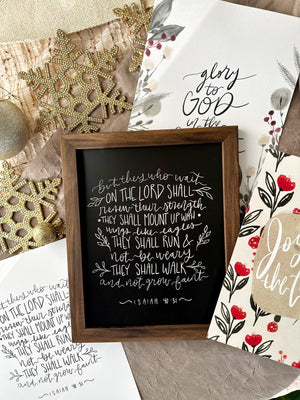 glory
to
GOD
in the
but they who wait
ON THE LORD SHALL
renew their strength
THEY SHALL MOUNT UP WITH
wings like eagles
THEY SHALL RUN &
not be weary
THEY SHALL WALK
and not grow faint
ISAIAH 40:31
Jo
the
but they who wait
ON THE LORD SHALL
renew their strength
THEY SHALL MOUNT
wings like
THEY SHALL RUN
not be weary
THEY SHALL WALK
and not grow faint
ISAIAH 40:31